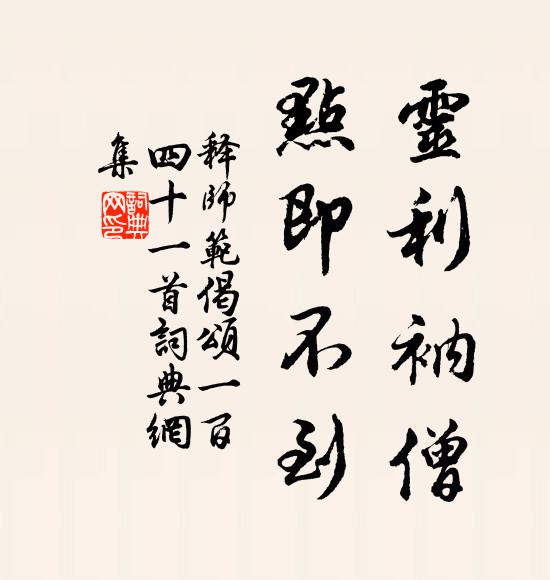 靈利衲僧
點即不到
释師範偈頌一百
四十一首詞典網
集
詞典
网印